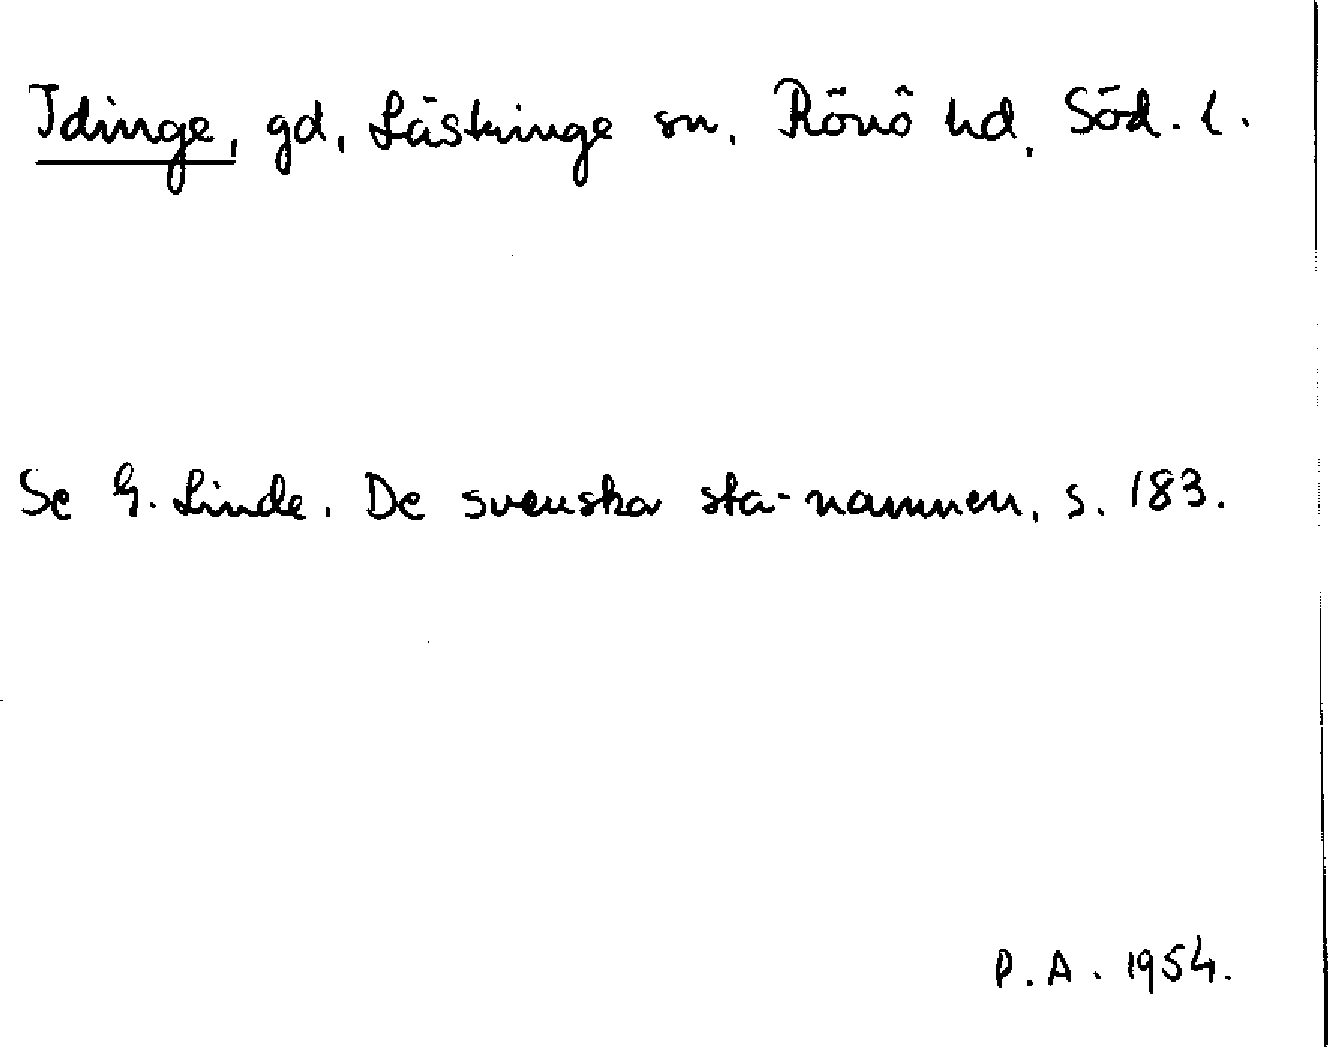 Idinge, gd, Lästringe sn, Rönö hd, Söd. l.
Se G. Linde. De svenska sta-namnen, s. 183.
P.A. 1954.